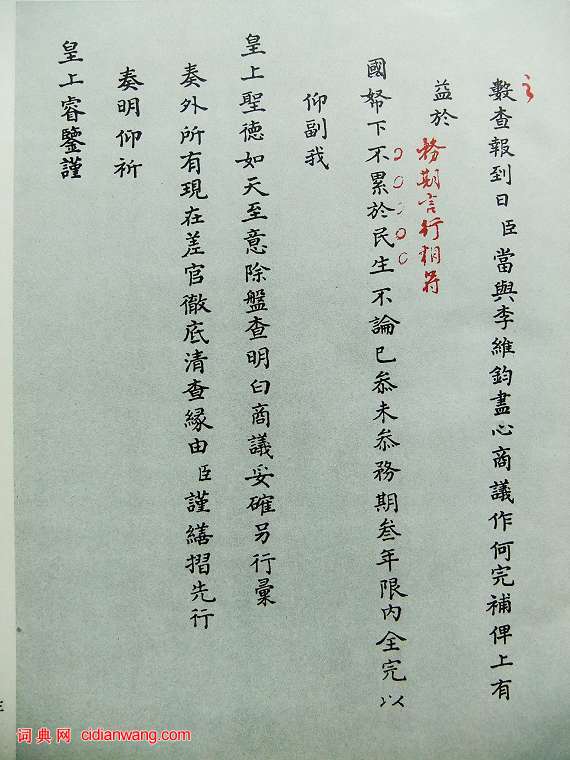 數查報到日臣當與李維鈞盡心商議作何完補俾上有
益於
務期言行相符
國帑下不累於民生不論已叅未叅務期叁年限內全完以
仰副我
皇上聖德如天至意除盤查明白商議妥確另行彙
奏外所有現在差官徹底清查緣由臣謹繕摺先行
奏明仰祈
皇上睿鑒謹
词典网 cidianwang.com